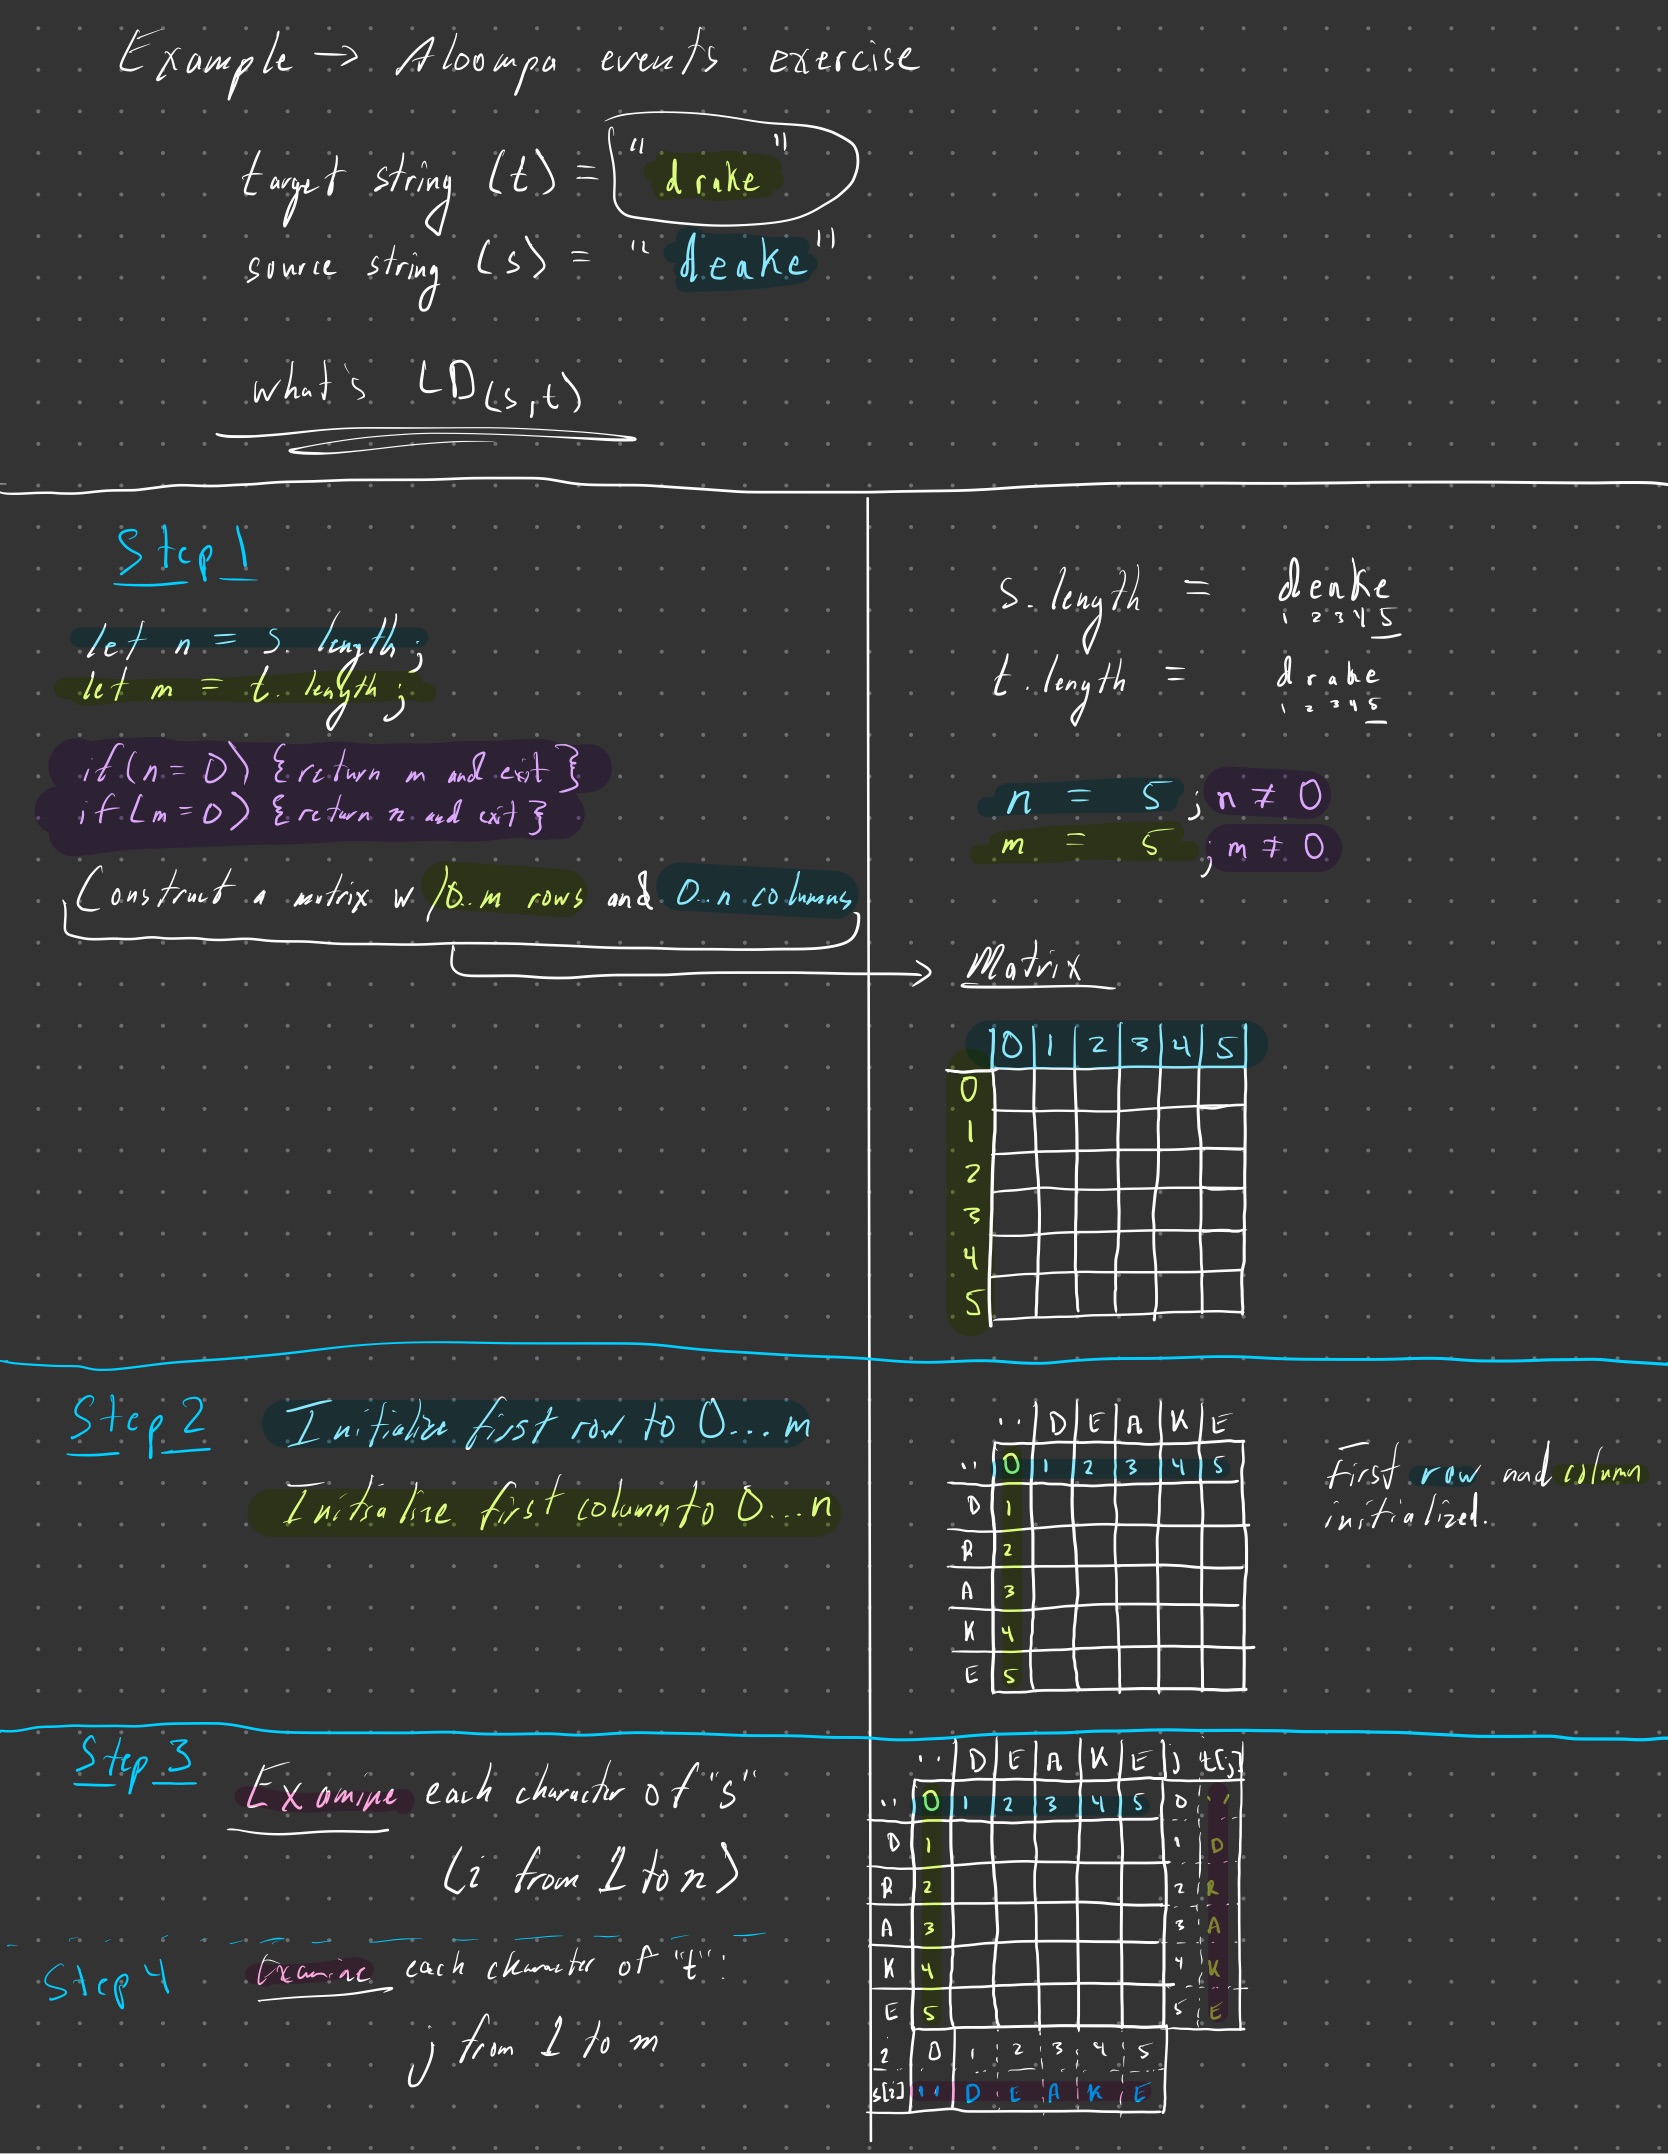 Example → Aloompa events exercise
target string (t) = "drake"
source string (s) = "deake"
what's LD(s,t)
Step 1
let n = s. length;
let m = t. length;
if (n = 0) {return m and exit}
if (m = 0) {return n and exit}
Construct a matrix w/ 0..m rows and 0..n columns
s. length = deake
1 2 3 4 5
t. length = drake
1 2 3 4 5
n = 5 ; n ≠ 0
m = 5 ; m ≠ 0
Matrix
0 1 2 3 4 5
0
1
2
3
4
5
Step 2 Initialize first row to 0...m
Initialize first column to 0...n
'' D E A K E
'' 0 1 2 3 4 5
D 1
R 2
A 3
K 4
E 5
First row and column
initialized.
Step 3
Examine each character of "s"
(i from 1 to n)
Step 4 Examine each character of "t":
j from 1 to m
'' D E A K E j t[j]
'' 0 1 2 3 4 5 0 ''
D 1 1 D
R 2 2 R
A 3 3 A
K 4 4 K
E 5 5 E
i 0 1 2 3 4 5
s[i] '' D E A K E